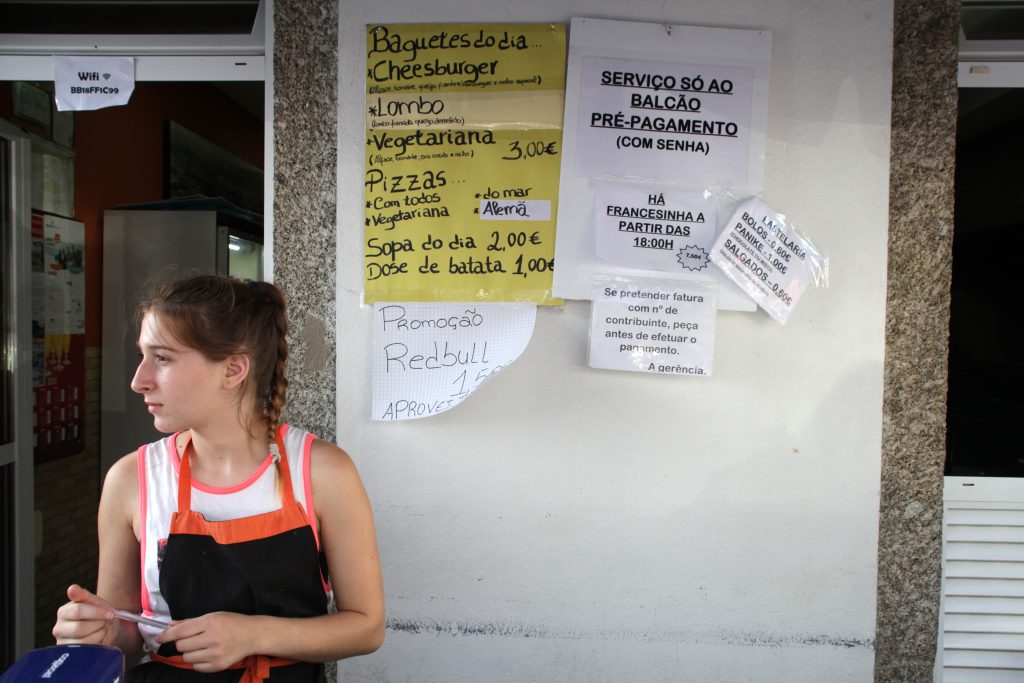 Wifi
BB18FF1C99
Baguetes do dia...
*Cheesburger
*Lombo
(lombo fumado queijo derretido)
*Vegetariana
3,00€
Pizzas...
*Com todos
*Vegetariana
*do mar
*Alemã
Sopa do dia 2,00€
Dose de batata 1,00€
Promoção
Redbull
APROVEI
SERVIÇO SÓ AO
BALCÃO
PRÉ-PAGAMENTO
(COM SENHA)
HÁ
FRANCESINHA A
PARTIR DAS
18:00H
7,50€
LASTELARIA
BOLOS – 0,60€
PANIKE – 1,00€
SALGADOS – 0,60€
Se pretender fatura
com nº de
contribuinte, peça
antes de efetuar o
pagamento.
A gerência.